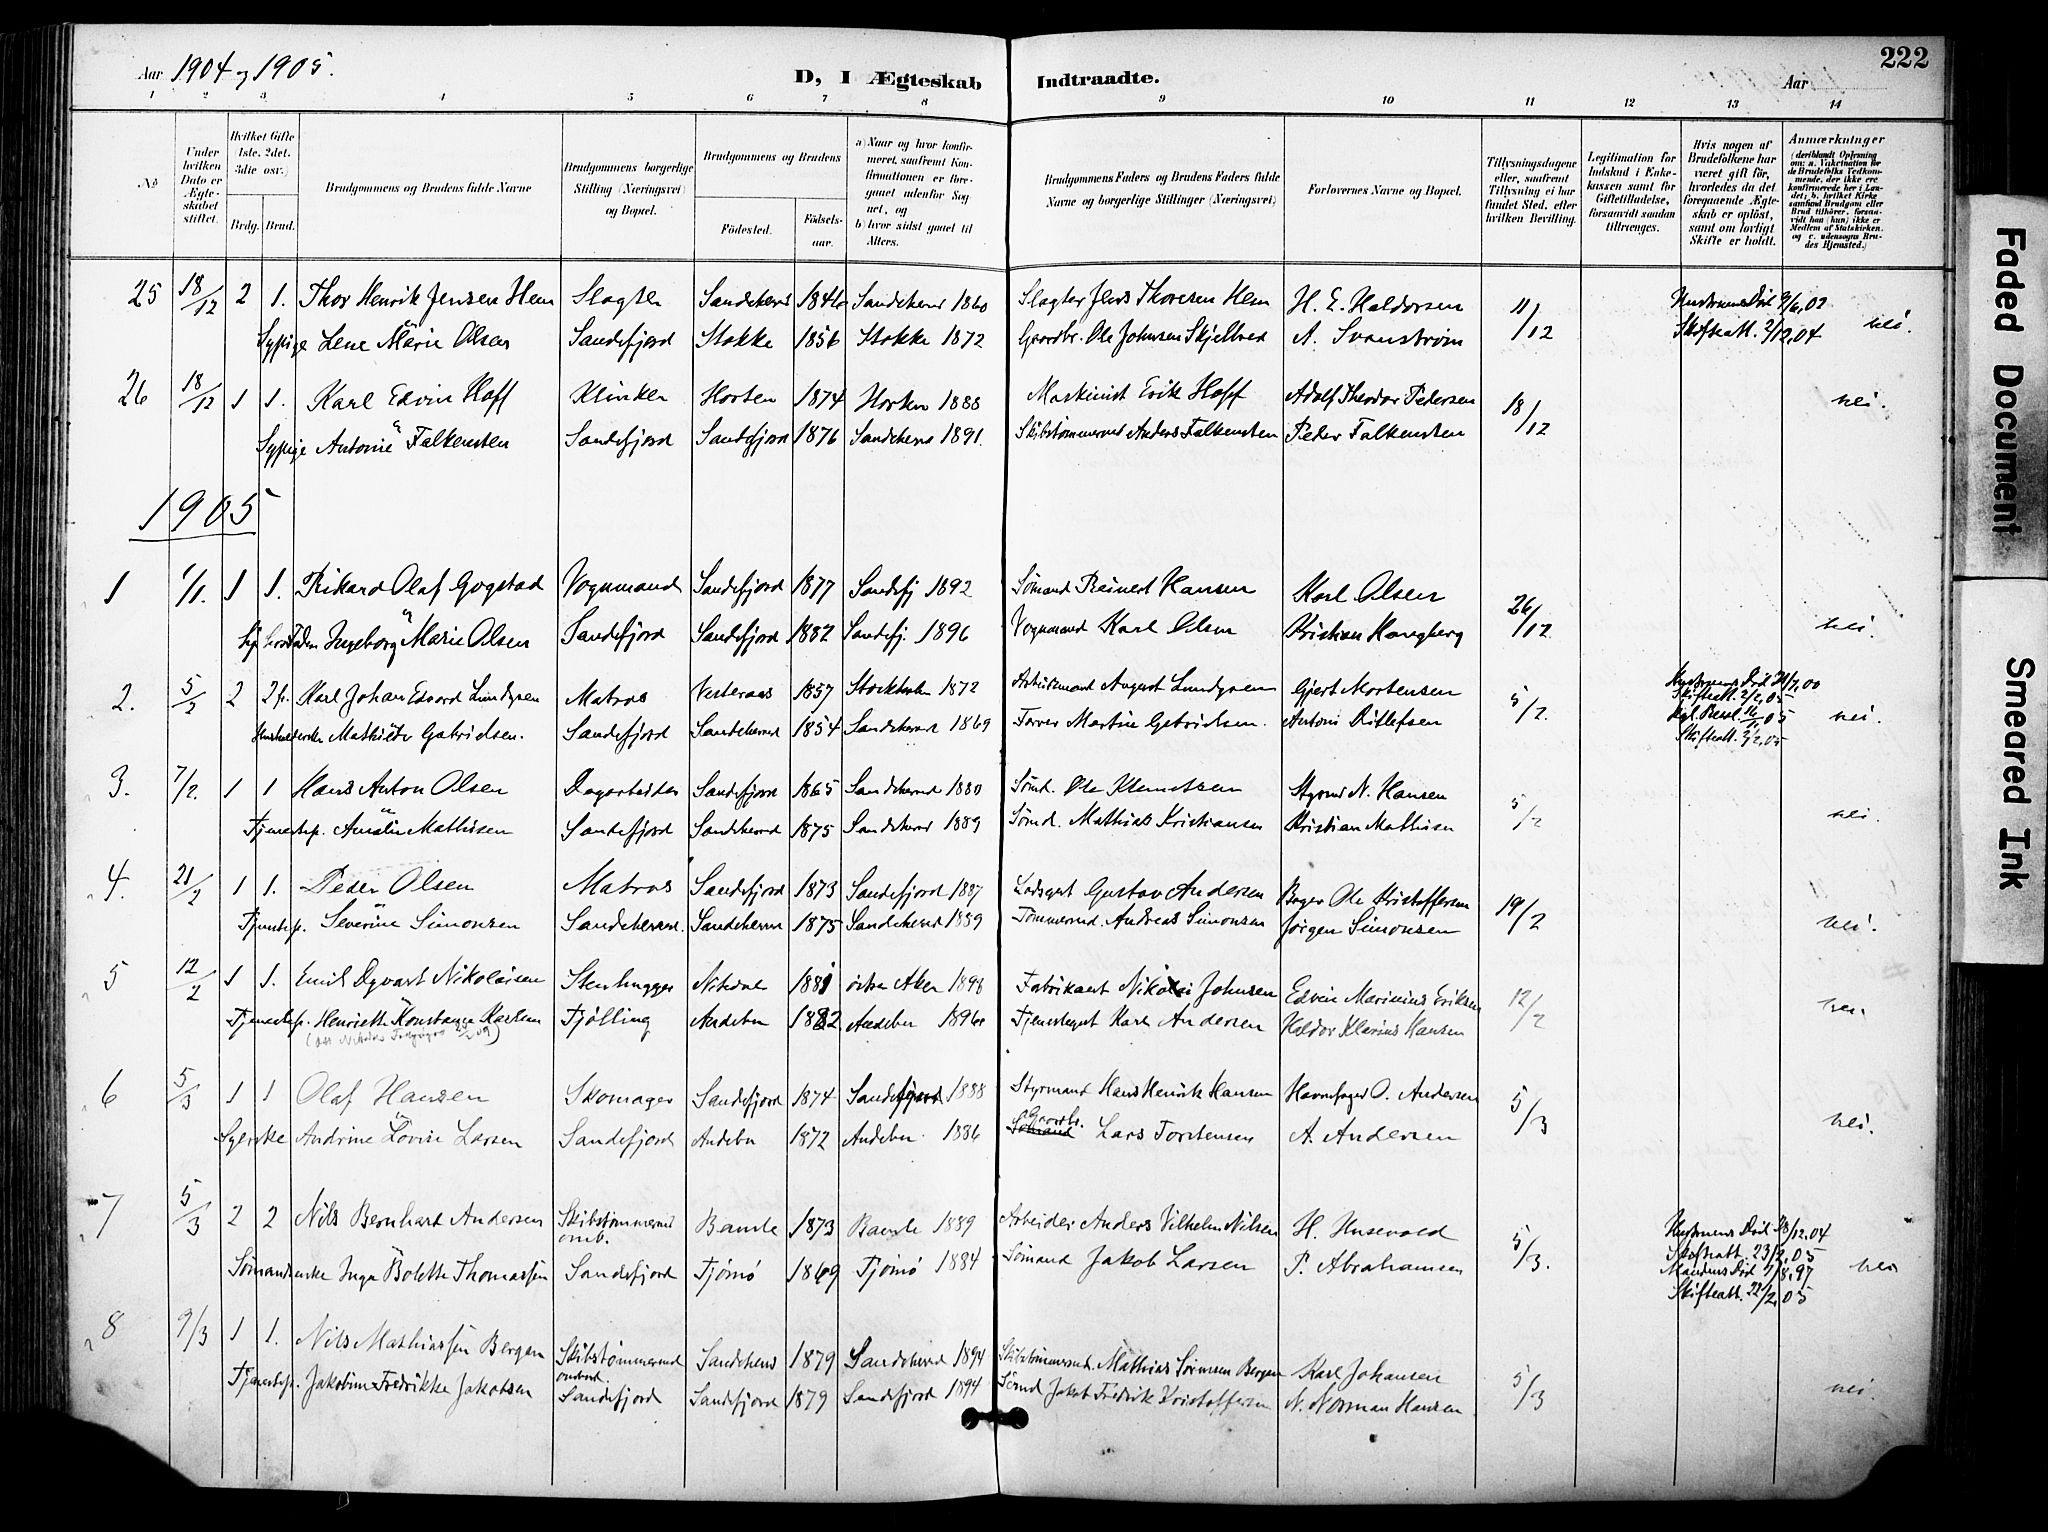 222
Aar 1904 og 1905.
D, I Ægteskab Indtraadte.
Aar
1 2 3. 4 5 6 7 8 9 10 11 12 13 14
No
Under hvilken Dato er Ægteskabet stiftet.
Hvilket Gifte 1ste, 2det, 3die osv.)
Brdg. Brud.
Brudgommens og Brudens fulde Navne
Brudgommens borgerlige Stilling (Næringsvei) og Bopæl.
Brudgommens og Brudens
Fødested. Fødselsaar.
a) Naar og hvor konfirmeret, saafremt Konfirmationen er foregaaet udenfor Sognet, og
b) hvor sidst gaaet til Alters.
Brudgommens Faders og Brudens Faders fulde Navne og borgerlige Stillinger (Næringsvei)
Forlovernes Navne og Bopæl.
Tillysningsdagene eller, saafremt Tillysning ei har fundet Sted, efter hvilken Bevilling.
Legitimation for Indskud i Enkekassen samt for Giftetilladelse, forsaavidt saadan tiltrænges.
Hvis nogen af Brudefolkene har været gift før, hvorledes da det foregaaende Ægteskab er opløst, samt om lovligt Skifte er holdt.
Anmærkninger
25 18/12 2 1. Thor Henrik Jensen Hem Slagter Sandeherred 1846 Sandeherred 1860 Slagter Jens Thoresen Hem H. E. Haldorsen 11/12 Hustruens Død 9/6,02
Sypige Lene Marie Olsen Sandefjord Stokke 1856 Stokke 1872 Gaardbr. Ole Johnsen Skjelbred A. Svanstrøm Skifteatt. 2/12,04 nei.
26 18/12 1 1. Karl Edvin Hoff Klinker Horten 1874 Horten 1888 Maskinist Erik Hoff Adolf Theodor Pedersen 18/12 nei.
Sypige Antonie Falkensten Sandefjord Sandefjord 1876 Sandeherred 1891. Skibstømmermd Anders Falkensten Peder Falkensten
1905
1 1/1. 1 1. Rikard Olaf Gogstad Vognmand Sandefjord 1877 Sandefj 1892 Sømand Reinert Hansen Karl Olsen 26/12
Ingeborg Marie Olsen Sandefjord Sandefjord 1882 Sandefj. 1896 Vognmand Karl Olsen Kristian Haugberg nei.
2. 5/2 2 2 Karl Johan Edvard Lundgren Matros Vesteraas 1857 Stockholm 1872 Arbeidsmand August Lundgren Gjert Mortensen 5/2. Hustruens Død 24/7,00
Skifteatt. 2/2,05
Mathilde Gabrielsen. Sandefjord Sandeherred 1854 Sandeherred 1869 Farver Martin Gabrielsen. Anton Ditlefsen kgl. Resol. 16/1 05 nei.
Skifteatt. 2/2,05
3. 7/2. 1 1 Hans Anton Olsen Dagarbeider Sandefjord 1865 Sandeherred 1880 Sømd. Ole Klemetsen Styrmd N. Hansen 5/2
Tjenestep. Amalie Mathisen Sandefjord Sandeherred 1875 Sandeherred 1889 Sømd. Mathias Kristiansen Kristian Mathisen nei.
4. 21/2 1 1. Peder Olsen Matros Sandefjord 1873 Sandefjord 1887 Lodsgut Gustav Andersen Bager Ole Kristoffersen 19/2
Tjenestep. Severine Simonsen Sandeherred. Sandeherred 1875 Sandeherred 1889 Tømmermd. Andreas Simonsen Jørgen Simonsen nei.
5 12/2 1 1. Emil Dyvart Nikolaisen Stenhugger Nitedal 1881 østre Aker 1898 Fabrikant Nikolai Johnsen Edvin Marinius Eriksen 12/2
Tjenestep. Henriette Konstanse Karlsen Tjølling Andebu 1882 Andebu 1896 Tjenestegut Karl Andersen Haldor Klarius Hansen nei.
6 5/3 1 1 Olaf Hansen Skomager Sandefjord 1874 Sandefjord 1888 Styrmand Hans Henrik Hansen Havnefoged O. Andersen 5/3
Syerske Andrine Lovise Larsen Sandefjord Andebu 1872 Andebu. 1886 Gaardbr. Lars Torstensen A. Andersen nei.
7 5/3 2 2 Nils Bernhart Andersen Skibstømmermd omb. Bamle 1873 Bamle 1889 Arbeider Anders Vilhelm Nilsen H. Husevold 5/3. Hustruens Død 28/12,04
Skifteatt. 23/2,05
Sømandsenke Inga Bolette Thomassen Sandefjord Tjømø 1869 Tjømø 1884 Sømand Jakob Larsen P. Abrahamsen Mandens Død 7/8,97 nei
Skifteatt. 22/2,05
8 9/3 1 1. Nils Mathiassen Bergan Skibstømmermd ombord. Sandeherred 1879 Sandeherred 1894 Skibstømmermd. Mathias Sørensen Bergan Karl Johansen 5/3
Tjenestep. Jakobine Fredrikke Jakobsen Sandefjord Sandefjord 1879 Sandefjord 1894 Sømd Jakob Fredrik Kristoffersen N. Norman Hansen nei.
Faded Document
Smeared Ink